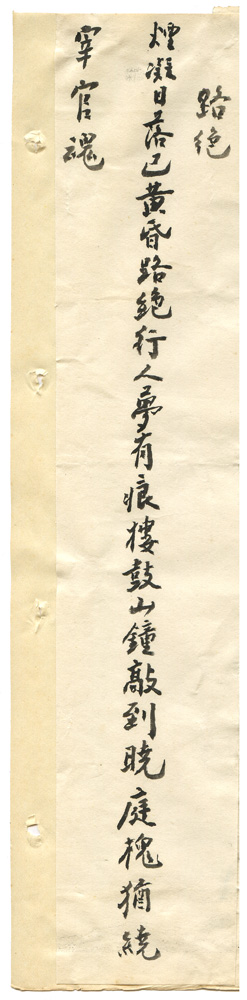 路絶
煙凝日落已黃昏路絶行人夢有痕樓鼓山鐘敲到曉庭槐猶繞
宰官魂